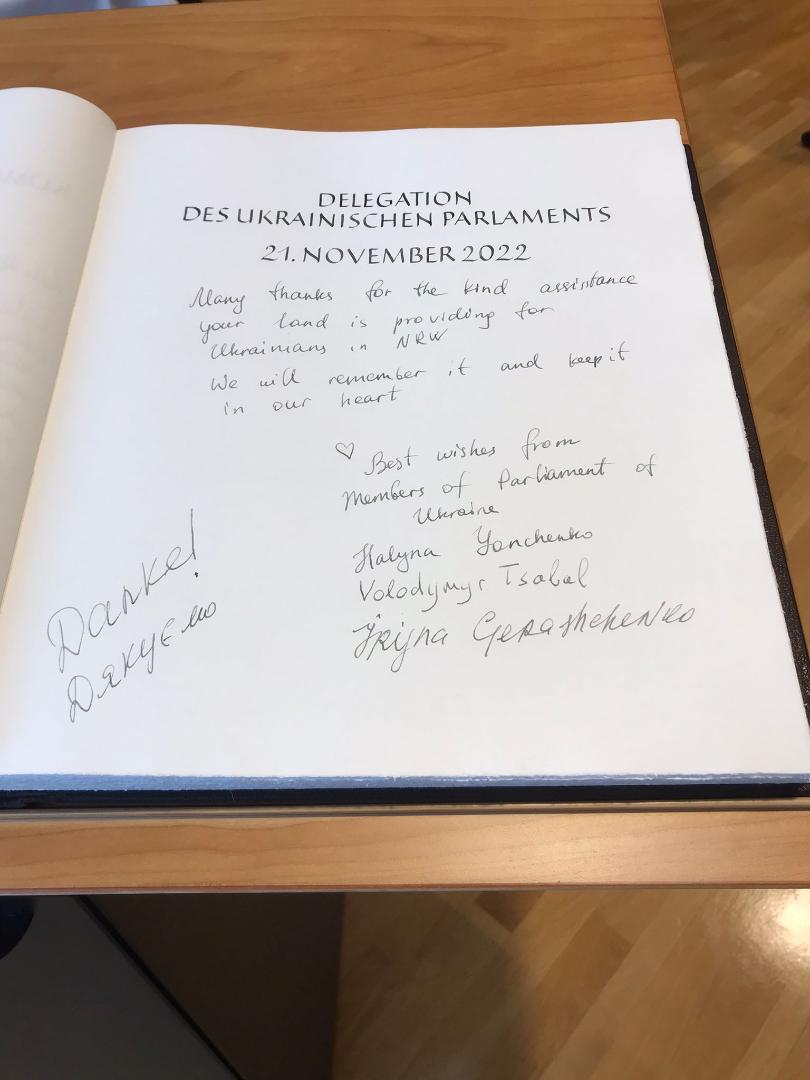 DELEGATION
DES UKRAINISCHEN PARLAMENTS
21. NOVEMBER 2022
Many thanks for the kind assistance
your land is providing for
Ukrainians in NRW
We will remember it and keep it
in our heart
♡ Best wishes from
Members of Parliament of
Ukraine
Halyna Yanchenko
Volodymyr Tsabal
Iryna Gerashchenko
Danke!
Дякуємо